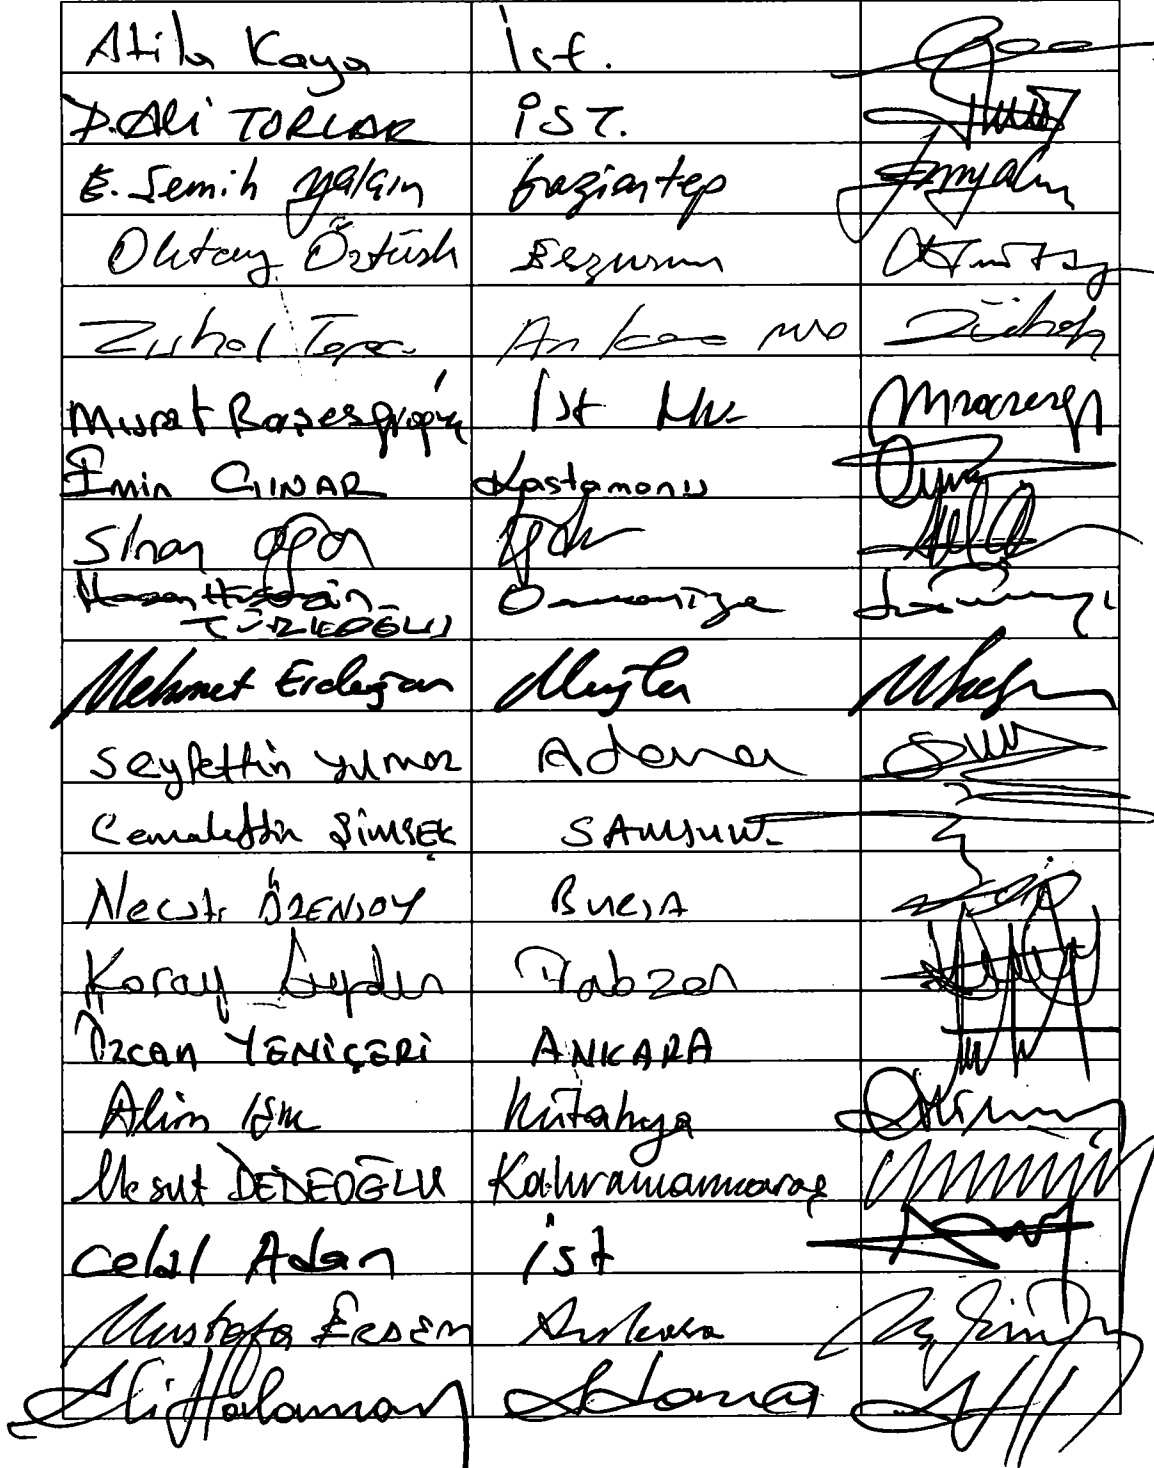 Atila Kaya İst.
D. Ali TORLAK İST.
E. Semih Yalçın Gaziantep
Oktay Öztürk Erzurum
Zuhal Topcu Ankara
Murat Başesgioğlu İst Mv.
Emin ÇINAR Kastamonu
Sinan Oğan Iğdır
Hasan Hüseyin Osmaniye
TÜRKOĞLU
Mehmet Erdoğan Muğla
Seyfettin Yılmaz Adana
Cemalettin ŞİMŞEK SAMSUN
Necati ÖZENSOY BURSA
Koray Aydın Trabzon
Özcan YENİÇERİ ANKARA
Alim Işık Kütahya
Mesut DEDEOĞLU Kahramanmaraş
Celal Adan İst
Mustafa ERDEM Ankara
Ali Halaman Adana